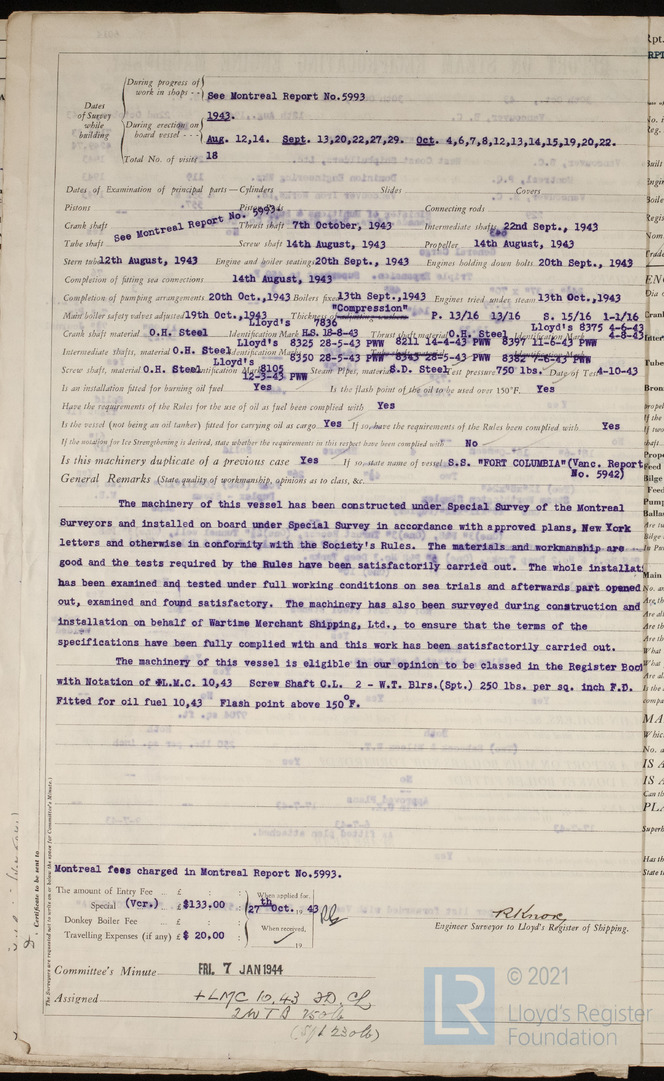 During progress of
work in shops - -
See Montreal Report No.5993
Dates
of Survey
while
building
1943.
During erection on
board vessel - - -
Aug. 12,14. Sept. 13,20,22,27,29. Oct. 4,6,7,8,12,13,14,15,19,20,22.
Total No. of visits 18
Dates of Examination of principal parts—Cylinders Slides Covers
Pistons Piston rods Connecting rods
See Montreal Report No. 5993.
Crank shaft Thrust shaft 7th October, 1943 Intermediate shafts 22nd Sept., 1943
Tube shaft Screw shaft 14th August, 1943 Propeller 14th August, 1943
Stern tube 12th August, 1943 Engine and boiler seatings 20th Sept., 1943 Engines holding down bolts 20th Sept., 1943
Completion of fitting sea connections 14th August, 1943
Completion of pumping arrangements 20th Oct.,1943 Boilers fixed 13th Sept.,1943 Engines tried under steam 13th Oct.,1943
"Compression"
Main boiler safety valves adjusted 19th Oct.,1943 Thickness of adjusting washers P. 13/16 13/16 S. 15/16 1-1/16
Lloyd's 7836 Lloyd's 8375 4-6-43
Crank shaft material O.H. Steel Identification Mark H.S. 18-8-43 Thrust shaft material O.H. Steel Identification Mark 4-8-43
Lloyd's 8325 28-5-43 PWW 8211 14-4-43 PWW 8397 11-6-43 PWW
Intermediate shafts, material O.H. Steel Identification Marks 8350 28-5-43 PWW 8349 28-5-43 PWW 8382 7-6-43 PWW
Lloyd's 8105
Screw shaft, material O.H. Steel Identification Mark 12-3-43 PWW Steam Pipes, material S.D. Steel Test pressure 750 lbs. Date of Test 4-10-43
Is an installation fitted for burning oil fuel Yes Is the flash point of the oil to be used over 150°F. Yes
Have the requirements of the Rules for the use of oil as fuel been complied with Yes
Is the vessel (not being an oil tanker) fitted for carrying oil as cargo Yes If so, have the requirements of the Rules been complied with Yes
If the notation for Ice Strengthening is desired, state whether the requirements in this respect have been complied with No
Is this machinery duplicate of a previous case Yes If so, state name of vessel S.S. "FORT COLUMBIA"(Vanc. Report
No. 5942)
General Remarks (State quality of workmanship, opinions as to class, &c.
The machinery of this vessel has been constructed under Special Survey of the Montreal
Surveyors and installed on board under Special Survey in accordance with approved plans, New York
letters and otherwise in conformity with the Society's Rules. The materials and workmanship are
good and the tests required by the Rules have been satisfactorily carried out. The whole installat
has been examined and tested under full working conditions on sea trials and afterwards part opened
out, examined and found satisfactory. The machinery has also been surveyed during construction and
installation on behalf of Wartime Merchant Shipping, Ltd., to ensure that the terms of the
specifications have been fully complied with and this work has been satisfactorily carried out.
The machinery of this vessel is eligible in our opinion to be classed in the Register Book
with Notation of +L.M.C. 10,43 Screw Shaft C.L. 2 - W.T. Blrs.(Spt.) 250 lbs. per sq. inch F.D.
Fitted for oil fuel 10,43 Flash point above 150°F.
Certificate to be sent to
(The Surveyors are requested not to write on or below the space for Committee's Minute.)
Montreal fees charged in Montreal Report No.5993.
The amount of Entry Fee .. £ : :
Special (Vcr.) £ $133.00
Donkey Boiler Fee ... £ : :
Travelling Expenses (if any) £ $ 20.00
When applied for,
27th Oct. 19 43
When received,
19
R Knox
Engineer Surveyor to Lloyd's Register of Shipping.
Committee's Minute FRI. 7 JAN 1944
Assigned +LMC 10.43 FD. CL
2 WTB 250lb
(Spt 230lb)
© 2021
LR
Lloyd's Register
Foundation